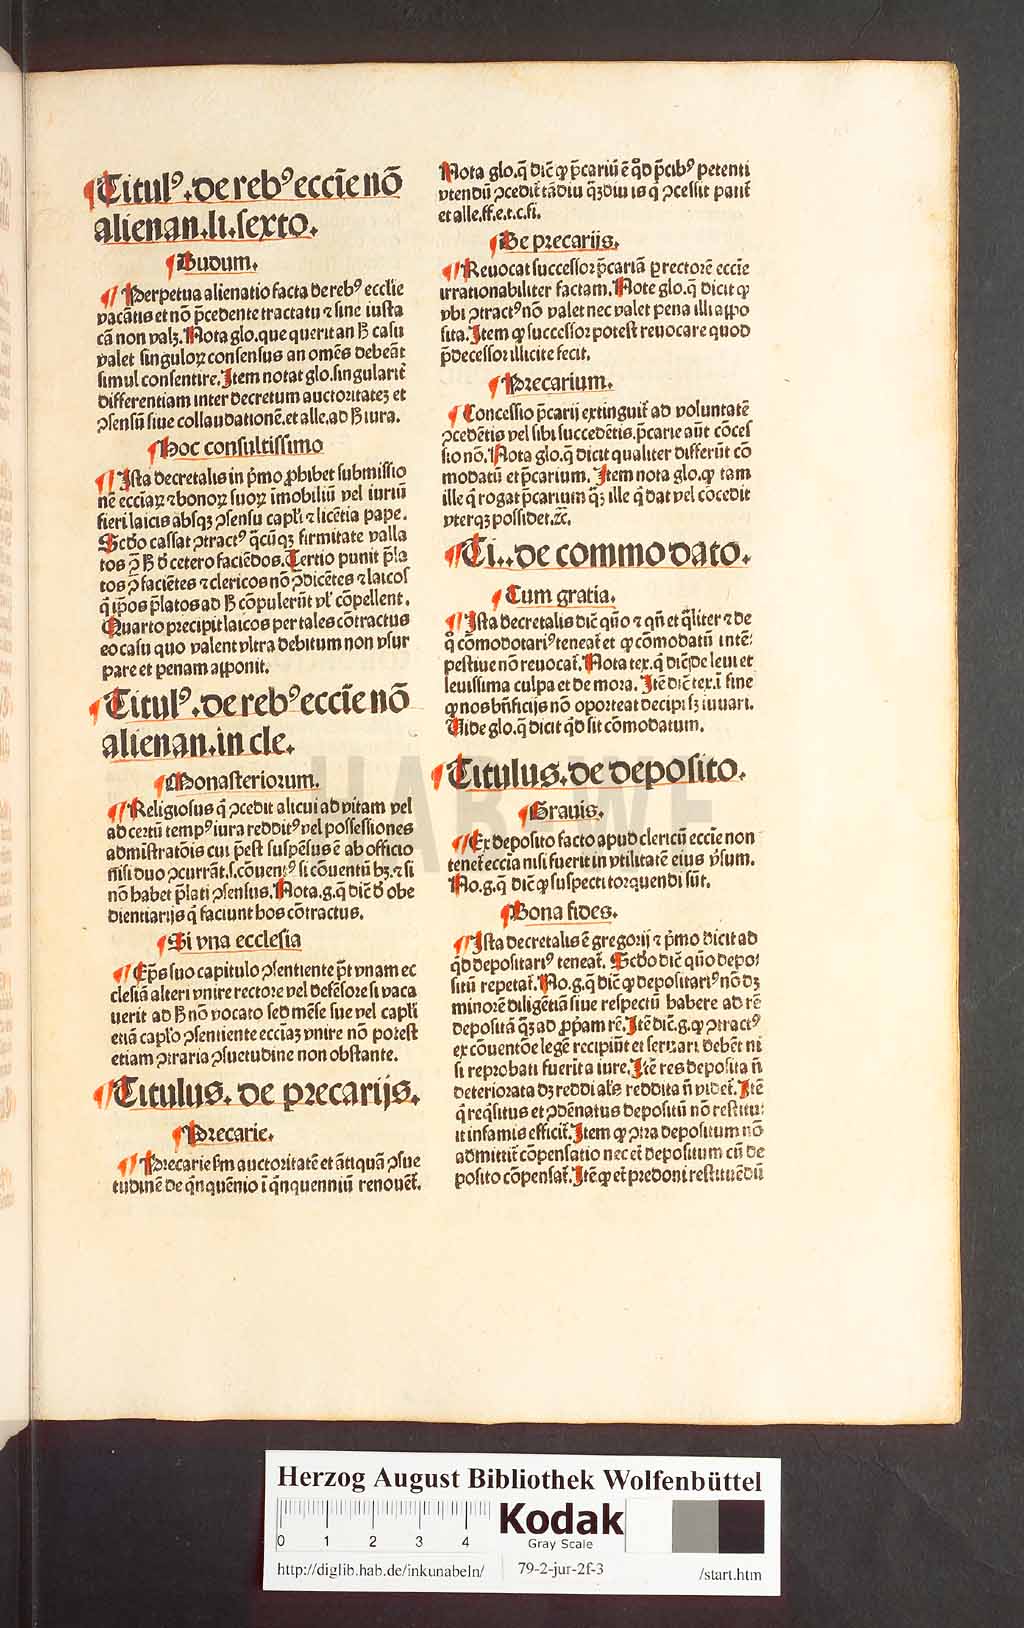 ¶ Titulꝰ. de rebꝰ eccl̄ie nō
alienan. li. sexto.
¶ Dudum.
¶ Perpetua alienatio facta de rebꝰ ecclie
vacātis et nō p̄cedente tractatu ⁊ sine iusta
cā non valꝫ. Nota glo. que querit an hͦ casu
valet singuloꝝ consensus an omēs debeāt
simul consentire. Item notat glo. singularit̄
differentiam inter decretum auctoritateꝫ et
ꝯsensū siue collaudationē. et alle. ad hͦ iura.
¶ Hoc consultissimo
¶ Ista decretalis in p̄mo ꝓhibet submissio
nē eccl̄iaꝝ ⁊ bonoꝝ suoꝝ īmobiliū vel iuriū
fieri laicis absqꝫ ꝯsensu capl̓i ⁊ licētia pape.
Scd̓o cassat ꝯtractꝰ q̄cūqꝫ firmitate valla
tos ꝯ̄ hͦ d̓ cetero faciēdos. Tertio punit p̄la
tos ꝯ̄ faciētes ⁊ clericos nō ꝯdicētes ⁊ laicos
q̄ ip̄os p̄latos ad hͦ cōpulerūt vl̓ cōpellent.
Quarto precipit laicos per tales cōtractus
eo casu quo valent vltra debitum non vsur
pare et penam apponit.
¶ Titulꝰ. de rebꝰ eccl̄ie nō
alienan. in cle.
¶ Monasteriorum.
¶ Religiosus q̄ ꝯcedit alicui ad vitam vel
ad certū tempꝰ iura redditꝰ vel possessiones
admīstratōis cui p̄est suspēsus ē ab officio
nisi duo ꝯcurrāt. s. cōuentꝰ si cōuentū hꝫ. ⁊ si
nō habet p̄lati ꝯsensus. Nota. g. q̄ dic̄ d̓ obe
dientiarijs q̄ faciunt hos cōtractus.
¶ Si vna ecclesia
¶ Ep̄s suo capitulo ꝯsentiente pōt vnam ec
clesiā alteri vnire rectore vel defēsore si vaca
uerit ad hͦ nō vocato sed mēse sue vel capl̓i
etiā capl̓o ꝯsentiente eccl̄iaꝫ vnire nō potest
etiam ꝯtraria ꝯsuetudine non obstante.
¶ Titulus. de precarijs.
¶ Precarie.
¶ Precarie s̄m auctoritatē et ātiquā ꝯsue
tudinē de q̄nquēnio ī q̄nquenniū renouēt̄.
Nota glo. q̄ dic̄ ꝙ p̄cariū ē q̄d p̄cibꝰ petenti
vtendū ꝯcedit̄ tādiu q̄ꝫdiu is q̄ ꝯcessit patit̄
et alle. ff. e. t. c. fi.
¶ De precarijs.
¶ Reuocat successor p̄cariā ꝑ rectorē eccl̄ie
irrationabiliter factam. Note glo. q̄ dicit ꝙ
vbi ꝯtractꝰ nō valet nec valet pena illi appo
sita. Item ꝙ successor potest reuocare quod
p̄decessor illicite fecit.
¶ Precarium.
¶ Concessio p̄carij extinguit̄ ad voluntatē
ꝯcedētis vel sibi succedētis. p̄carie aūt cōces
sio nō. Nota glo. q̄ dicit qualiter differūt cō
modatū et p̄carium. Item nota glo. ꝙ tam
ille q̄ rogat p̄carium q̄ꝫ ille q̄ dat vel cōcedit
vterqꝫ possidet. ⁊c̄.
¶ Ti.. de commodato.
¶ Cum gratia.
¶ Ista decretalis dic̄ qn̄o ⁊ qn̄ et q̄liter ⁊ de
q̊ cōmodotariꝰ teneat̄ et ꝙ cōmodatū intē-
pestiue nō reuocat̄. Nota tex. q̄ dic̄ de leui et
leuissima culpa et de mora. Itē dic̄ tex. ī fine
ꝙ nos bn̄ficijs nō oporteat decipi sꝫ iuuari.
Vide glo. q̄ dicit q̄d sit cōmodatum.
¶ Titulus. de deposito.
¶ Grauis.
¶ Ex deposito facto apud clericū eccl̄ie non
tenet̄ eccl̄ia nisi fuerit in vtilitatē eius v̓sum.
No. g. q̄ dic̄ ꝙ suspecti torquendi sūt.
¶ Bona fides.
¶ Ista decretalis ē gregorij ⁊ p̄mo dicit ad
q̄d depositariꝰ teneat̄. Scd̓o dic̄ qn̄o depo-
sitū repetat̄. No. g. q̄ dic̄ ꝙ depositariꝰ nō dꝫ
minorē diligētiā siue respectū habere ad rē
depositā q̄ꝫ ad ꝓp̄am rē. Itē dic̄. g. ꝙ ꝯtractꝰ
ex cōuentōe legē recipiūt et seruari debēt ni
si reprobati fuerīt a iure. Itē res deposita n̄
deteriorata dꝫ reddi al̓s reddita n̄ videt̄. Itē
q̄ reqͥsitus et ꝯdēnatus depositū nō restitu-
it infamis efficit̄. Item ꝙ ꝯtra depositum nō
admittit̄ cōpensatio nec et̄ depositum cū de
posito cōpensat̄. Itē ꝙ et̄ predoni restituēdū
HAB WF
Herzog August Bibliothek Wolfenbüttel
0 1 2 3 4
Kodak
Gray Scale
http://diglib.hab.de/inkunabeln/ 79-2-jur-2f-3 /start.htm